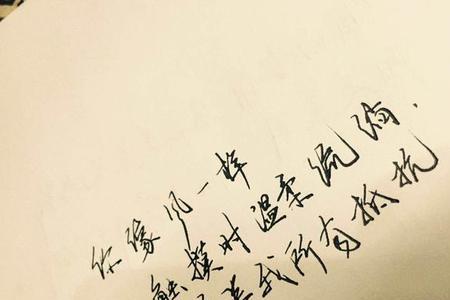 你像风一样
触摸时温柔流淌.
我所有抵抗